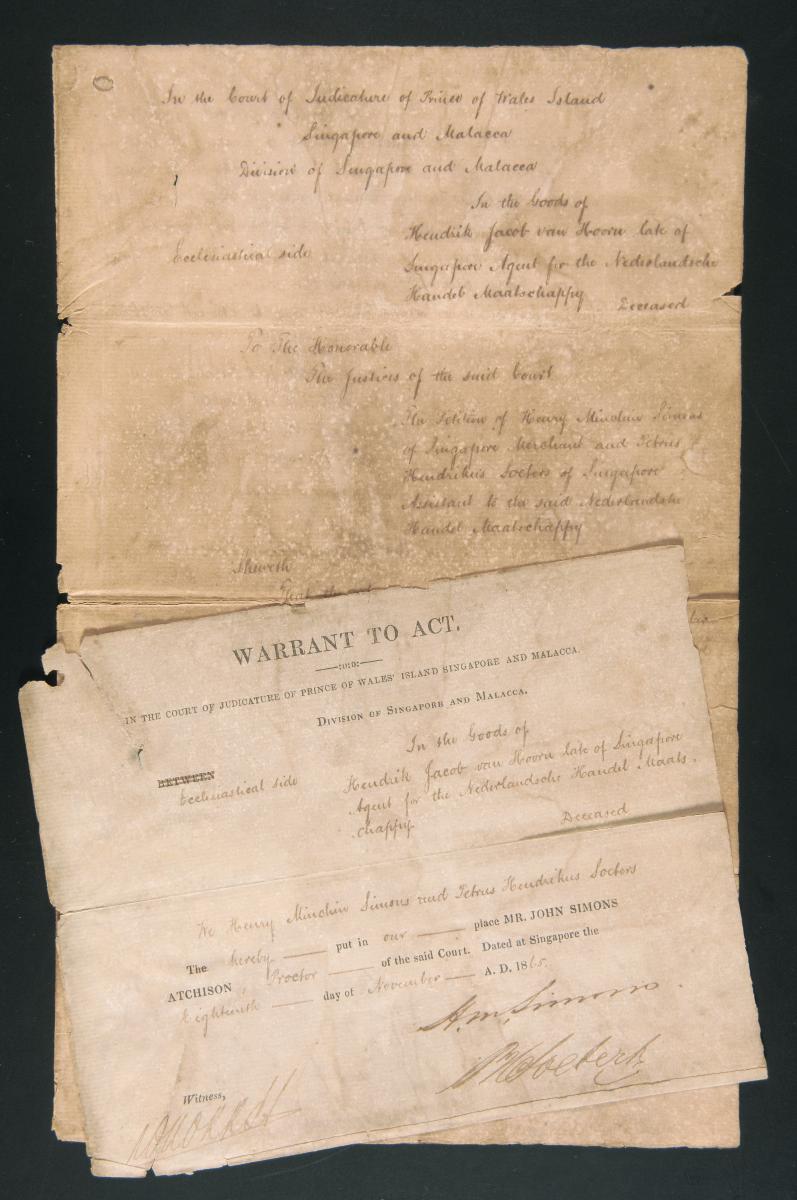 In the Court of Judicature of Prince of Wales Island
Singapore and Malacca
Division of Singapore and Malacca
In the Goods of
Hendrik Jacob van Hoorn late of
Ecclesiastical side
Singapore Agent for the Nederlandsche
Handel Maatschappy
Deceased
To The Honorable
The Justices of the said Court
The Petition of Henry Minchin Simons
of Singapore Merchant and Petrus
Hendrikus Soeters of Singapore
Assistant to the said Nederlandsche
Handel Maatschappy
Sheweth
That the
WARRANT TO ACT.
IN THE COURT OF JUDICATURE OF PRINCE OF WALES' ISLAND SINGAPORE AND MALACCA.
DIVISION OF SINGAPORE AND MALACCA.
In the Goods of
BETWEEN
Ecclesiastical side
Hendrik Jacob van Hoorn late of Singapore
Agent for the Nederlandsche Handel Maats-
chappy
Deceased
We Henry Minchin Simons and Petrus Hendrikus Soeters
The hereby put in our place MR. JOHN SIMONS
ATCHISON, Proctor of the said Court. Dated at Singapore the
Eighteenth day of November A. D. 1865.
H. M. Simons
Witness,